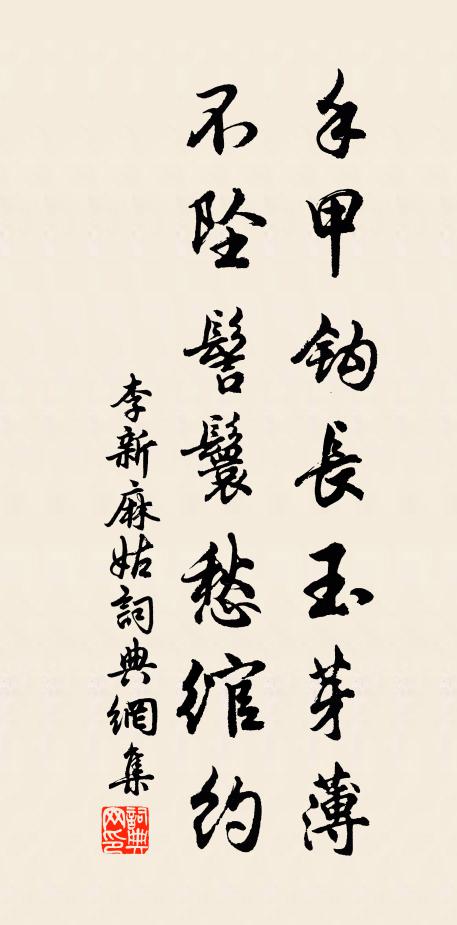 手甲鉤長玉芽薄
不墜髻鬟愁綰約
李新麻姑詞典網集
詞典網印